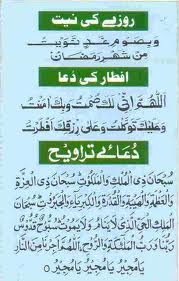 روزے کی نیت
وَبِصَوْمِ غَدٍ نَّوَيْتُ
مِنْ شَهْرِ رَمَضَانَ
افطار کی دعا
اَللّٰهُمَّ اِنِّی لَكَ صُمْتُ وَبِكَ اٰمَنْتُ
وَعَلَيْكَ تَوَكَّلْتُ وَعَلٰی رِزْقِكَ اَفْطَرْتُ
دُعائے تراویح
سُبْحَانَ ذِی الْمُلْكِ وَالْمَلَكُوْتِ سُبْحَانَ ذِی الْعِزَّةِ
وَالْعَظَمَةِ وَالْهَيْبَةِ وَالْقُدْرَةِ وَالْكِبْرِيَآءِ وَالْجَبَرُوْتِ سُبْحَانَ
الْمَلِكِ الْحَیِّ الَّذِیْ لَا يَنَامُ وَلَا يَمُوْتُ سُبُّوْحٌ قُدُّوْسٌ
رَبُّنَا وَرَبُّ الْمَلٰٓئِكَةِ وَالرُّوْحِ اَللّٰهُمَّ اَجِرْنَا مِنَ النَّارِ
يَا مُجِيْرُ يَا مُجِيْرُ يَا مُجِيْرُ ○